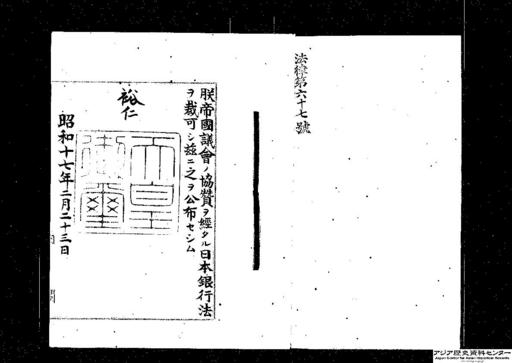 法律第六十七號
朕帝國議會ノ協贊ヲ經タル日本銀行法
ヲ裁可シ茲ニ之ヲ公布セシム
裕仁
天皇
御璽
昭和十七年二月二十三日
アジア歴史資料センター
Japan Center for Asian Historical Records